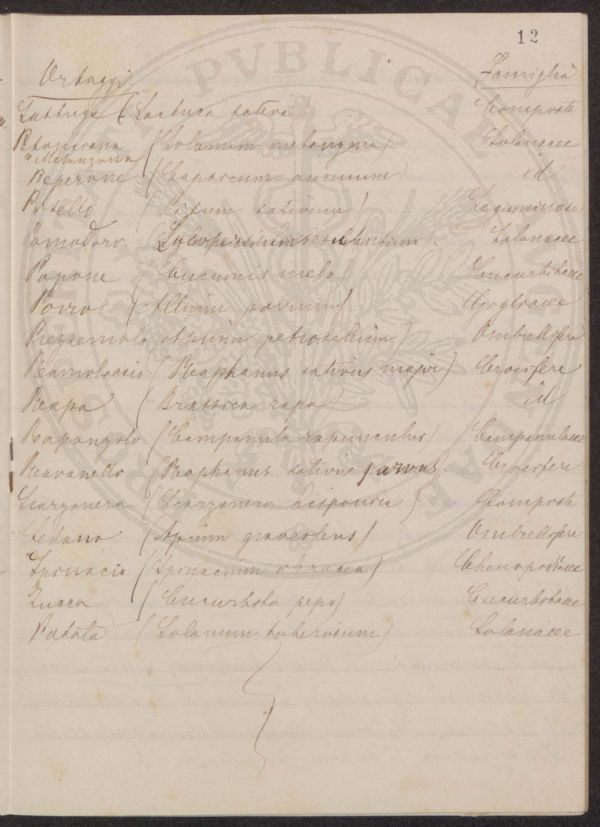 12
Ortaggi Famiglia
Lattuga (Lactuca sativa Composte
Petonciana (Solanum melongena) Solanacee
o Melanzana
Peperone (Capsicum annuum) id
Pisello (Pisum sativum) Leguminose
Pomodoro (Lycopersicum esculentum) Solanacee
Popone (Cucumis melo) Cucurbitacee
Porro (Allium porrum)
Prezzemolo (Apium petroselium) Ombrellifere
Ramolaccio (Raphanus sativus major) Crocifere
Rapa (Brassica rapa) id
Raponzolo (Campanula rapunculus) Campanulacee
Ravanello (Raphanus sativus parvus) Crocifere
Scorzonera (Scorzonera hispanica) Composte
Sedano (Apium graveolens) Ombrellifere
Spinacio (Spinacium oleracea) Chenopodiacee
Zucca (Cucurbita pepo) Cucurbitacee
Patata (Solanum tuberosum) Solanacee